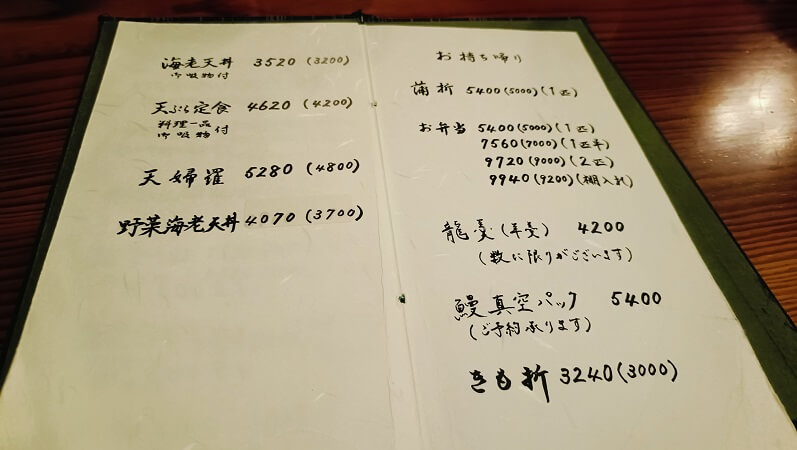 海老天丼 3520 (3200)
御吸物付
天ぷら定食 4620 (4200)
料理一品
御吸物付
天婦羅 5280 (4800)
野菜海老天丼 4070 (3700)
お持ち帰り
蒲折 5400(5000)(1匹)
お弁当 5400(5000)(1匹)
7560(7000)(1匹半)
9720(9000)(2匹)
9940(9200)(棚入れ)
龍羹(羊羹) 4200
(数に限りがございます)
鰻真空パック 5400
(ご予約承ります)
きも折 3240(3000)